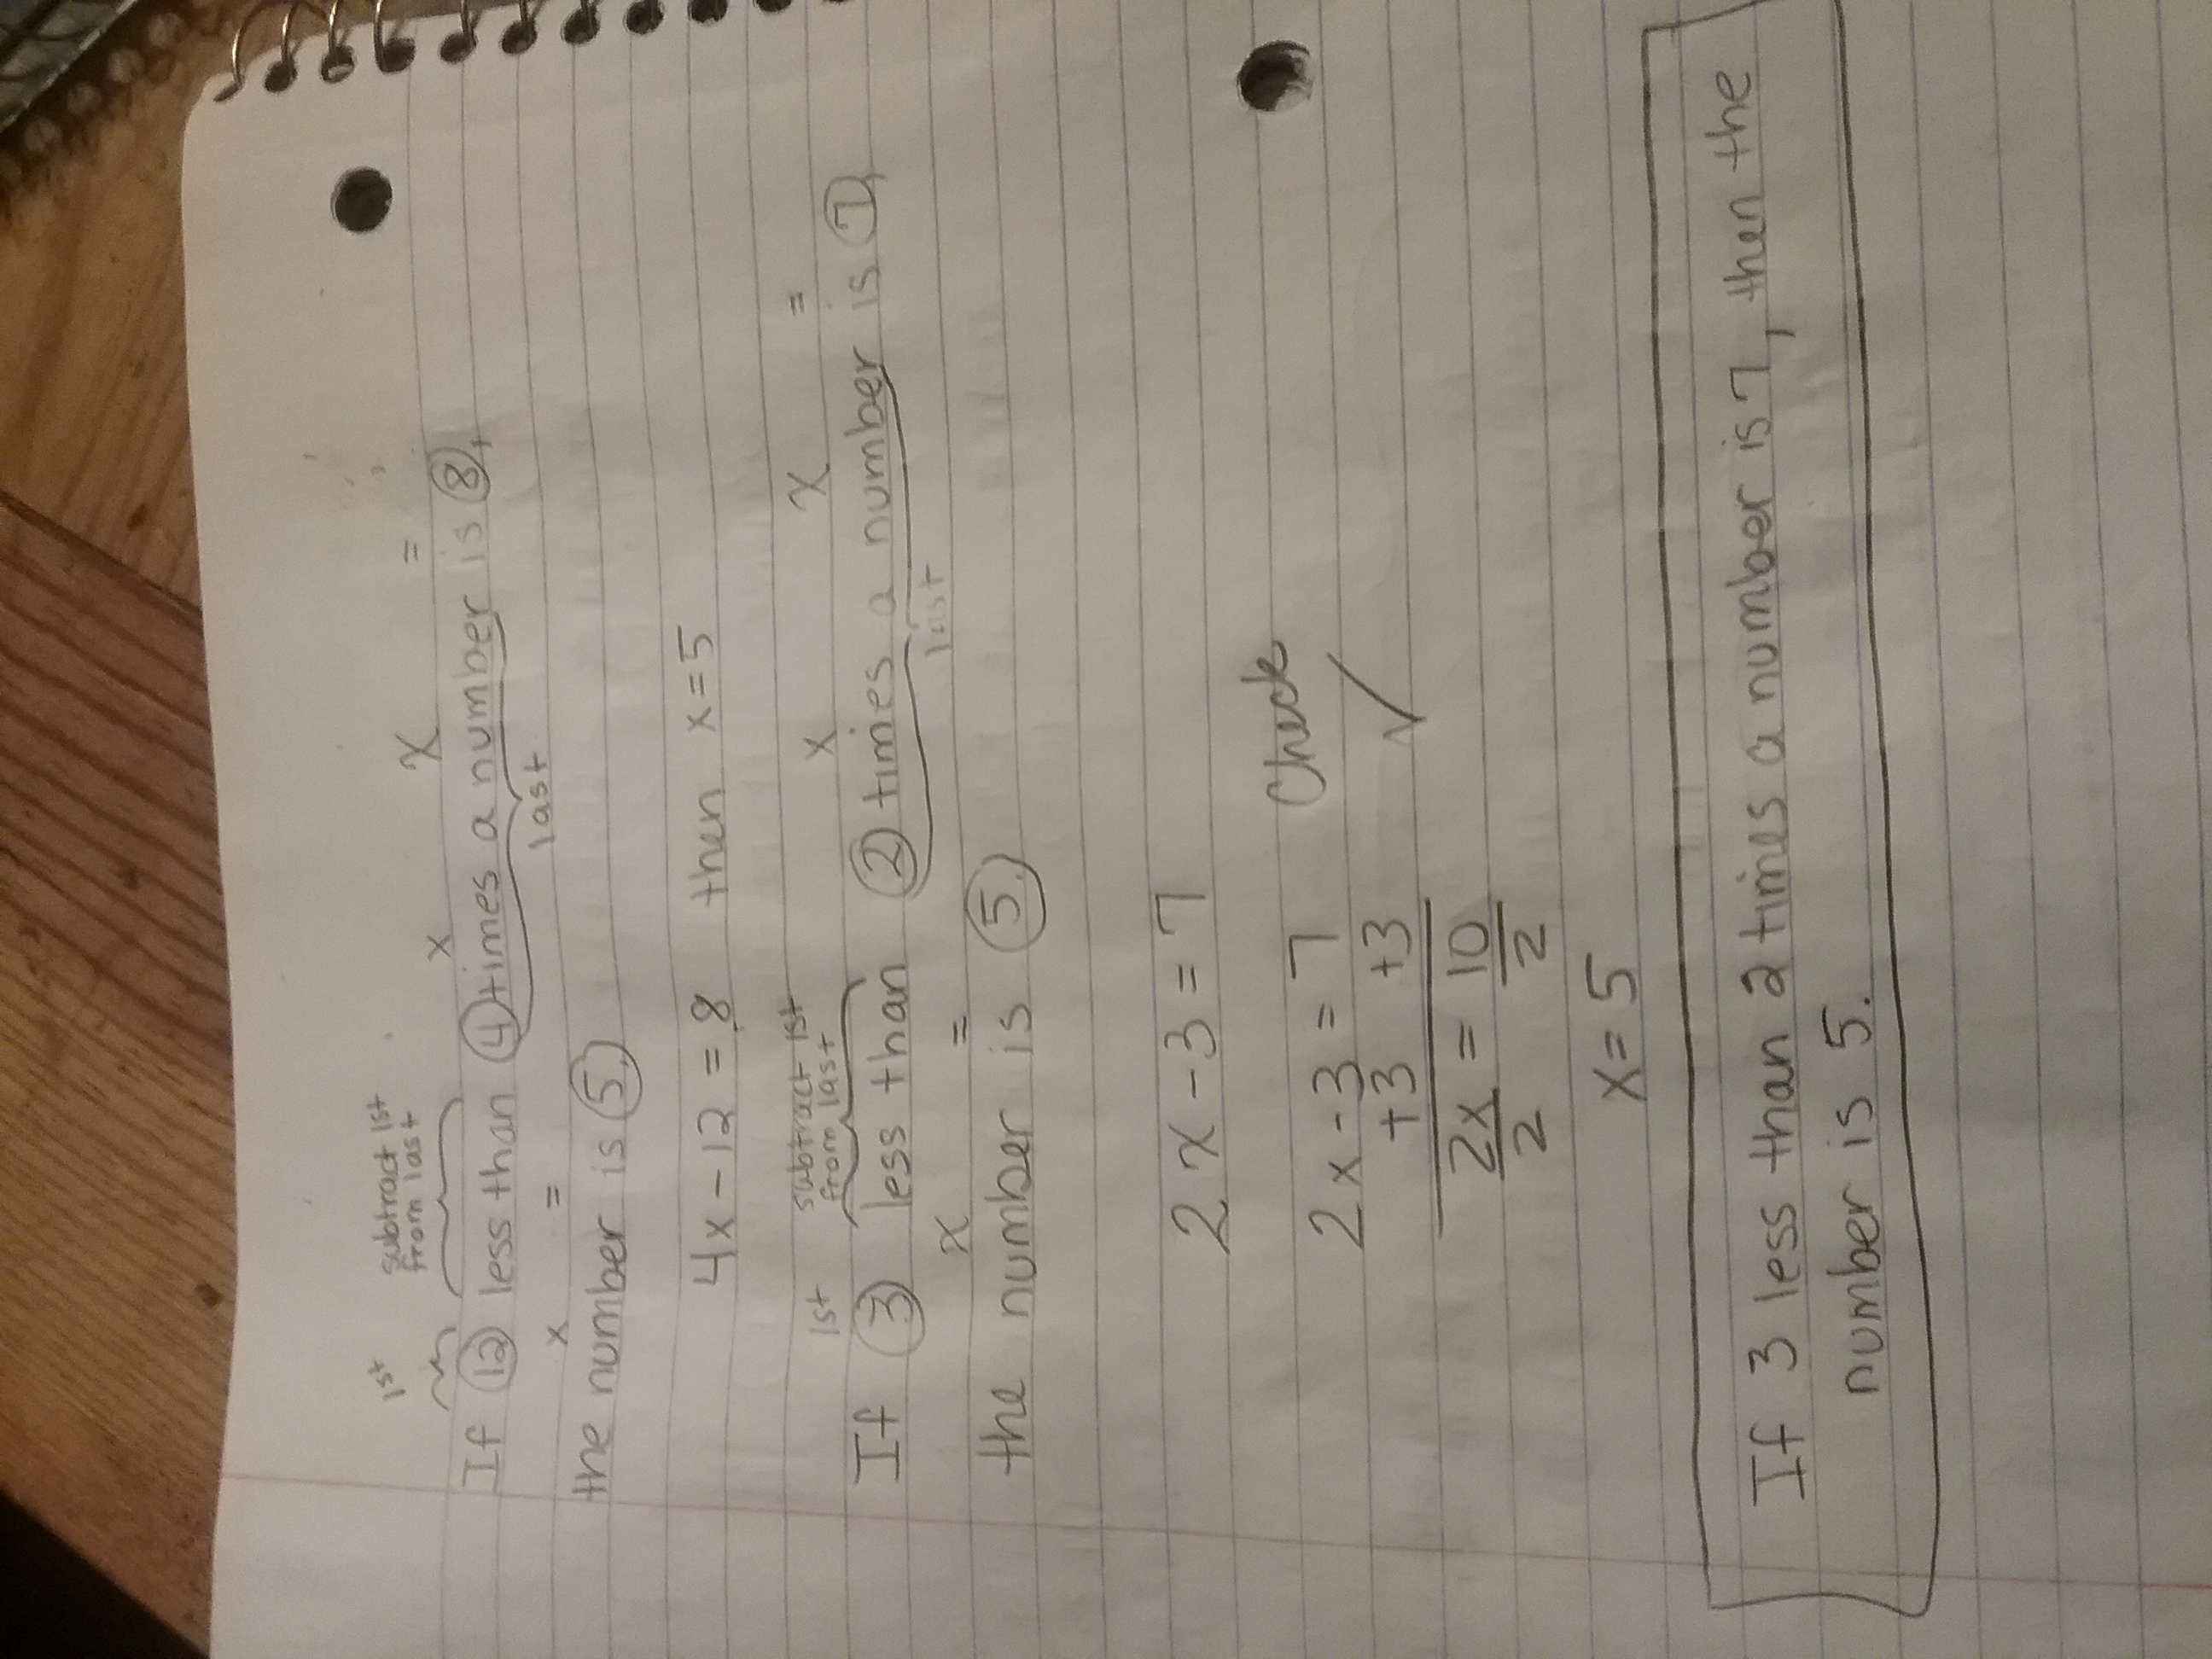 1st subtract 1st
from last x x =
If 12 less than 4 times a number is 8,
last
x =
the number is 5.
4x - 12 = 8 then x = 5
1st subtract 1st
from last x x =
If 3 less than 2 times a number is 7,
last
x =
the number is 5.
2x - 3 = 7
Check
2x - 3 = 7 ✓
+3 +3
2x = 10
2 2
x = 5
If 3 less than 2 times a number is 7, then the
number is 5.